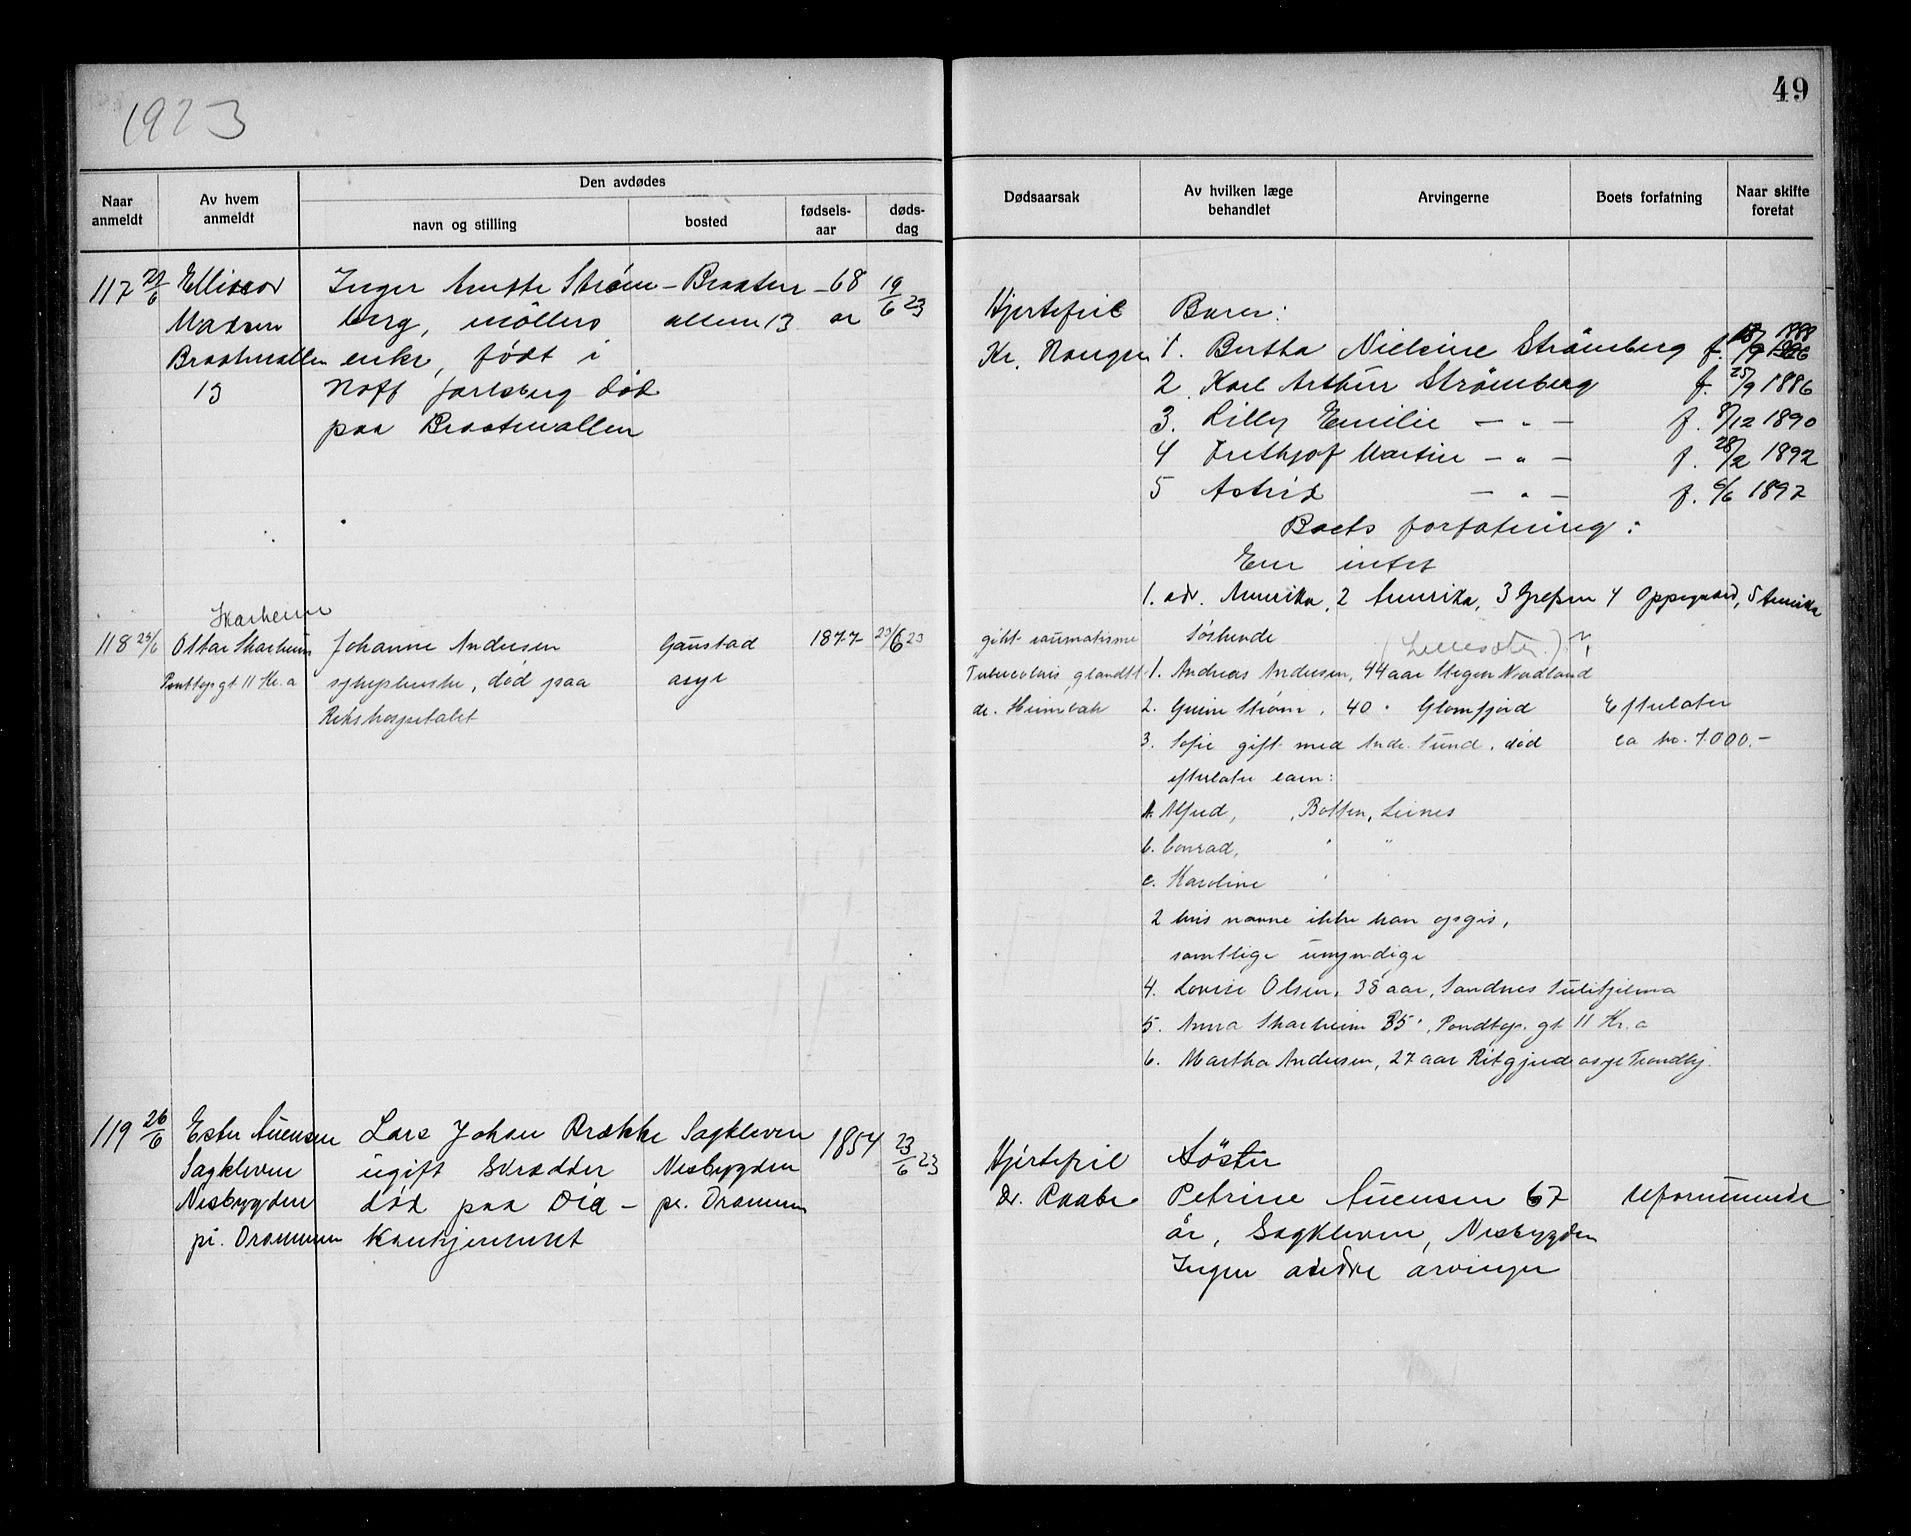 1923
49
Naar anmeldt
Av hvem anmeldt
Den avdødes
navn og stilling
bosted
fødsels-aar
døds-dag
Dødsaarsak
Av hvilken læge behandlet
Arvingerne
Boets forfatning
Naar skifte foretat
117
Madsen
Braatenalleen
13
Inger Anette Strøm-
berg, møllers
enke, født i
Noff Jarlsberg død
paa Braatenalleen
Braaten-
alleen 13
68
år
19/6 23
Hjertefeil
Kr. Haugen
Barn:
1. Bertha Nielsine Strømberg f. 18/9 1888
2. Karl Arthur Strømberg f. 25/9 1886
3. Lilly Emilie — " — f. 8/12 1890
4 Frithjof Martin — " — f. 28/2 1892
5 Astrid — " — f. 6/6 1897
Boets forfatning:
Eier intet
1. adr. Amerika, 2 Amerika, 3 Grefsen 4 Oppegaard, 5 Amerika
Skarheim
118 25/6
Ottar Skarheim
gt 11 Kr.a
Johanne Andersen
sykepleierske, død paa
Rikshospitalet
Gaustad
asyl
1877
23/6 23
gikt raumatisme
dr. Heimbeck
Søskende
1. Andreas Andersen, 44 aar Stegen Nordland
2. Strøm, 40 " Glomfjord
3. Sofie gift med Andr. Sund, død
efterlater barn:
a. Alfred, , Leines
b. Conrad, " "
c. Karoline " "
2 hvis navne ikke kan opgis,
samtlige umyndige
4. Lovise Olsen, 38 aar, Sandnes Sulitjelma
5. Anna Skarheim 35 ", gt 11 Kr.a
6. Martha Andersen, 27 aar asyl Trondhj.
Efterlater
ca kr. 1000.-
119 26/6
Ester Svensen
Sagkleven
Nesbygden
pr. Drammen
Lars Johan Brække
ugift skrædder
død paa Dia-
konhjemmet
Sagkleven
Nesbygden
pr. Drammen
1854
23/6 23
Hjertefeil
dr. Raabe
Søster
Petrine Svensen 67
år, Sagkleven, Nesbygden
Ingen andre arvinger
Uformuende